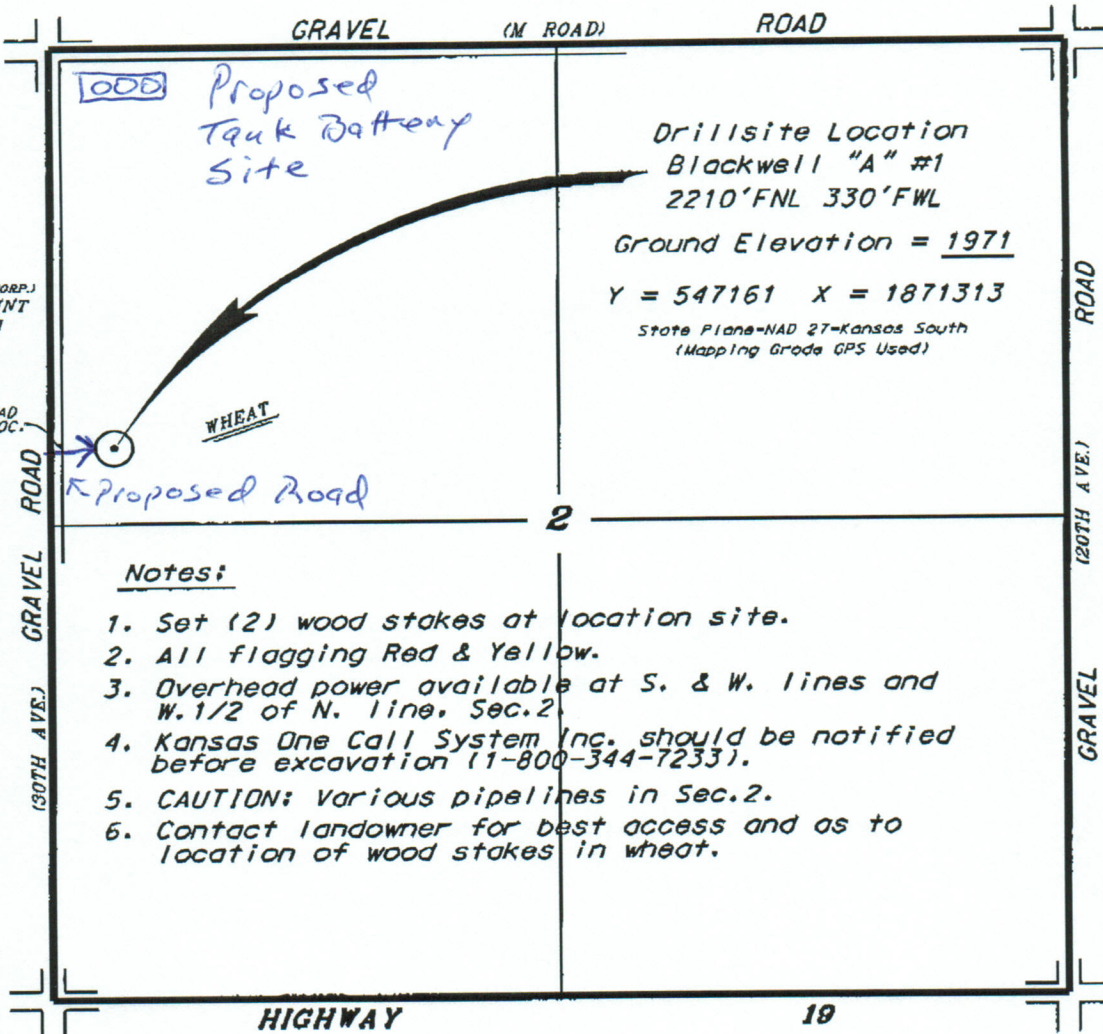 GRAVEL (M ROAD) ROAD
Proposed
Tank Battery
Site
Drillsite Location
Blackwell "A" #1
2210'FNL 330'FWL
Ground Elevation = 1971
Y = 547161 X = 1871313
State Plane-NAD 27-Kansas South
(Mapping Grade GPS Used)
ORP.)
WHEAT
OC.
Proposed Road
2
GRAVEL ROAD
(30TH AVE.)
ROAD
(20TH AVE.)
GRAVEL
Notes:
1. Set (2) wood stakes at location site.
2. All flagging Red & Yellow.
3. Overhead power available at S. & W. lines and
W. 1/2 of N. line. Sec.2.
4. Kansas One Call System Inc. should be notified
before excavation (1-800-344-7233).
5. CAUTION: Various pipelines in Sec.2.
6. Contact landowner for best access and as to
location of wood stakes in wheat.
HIGHWAY 19